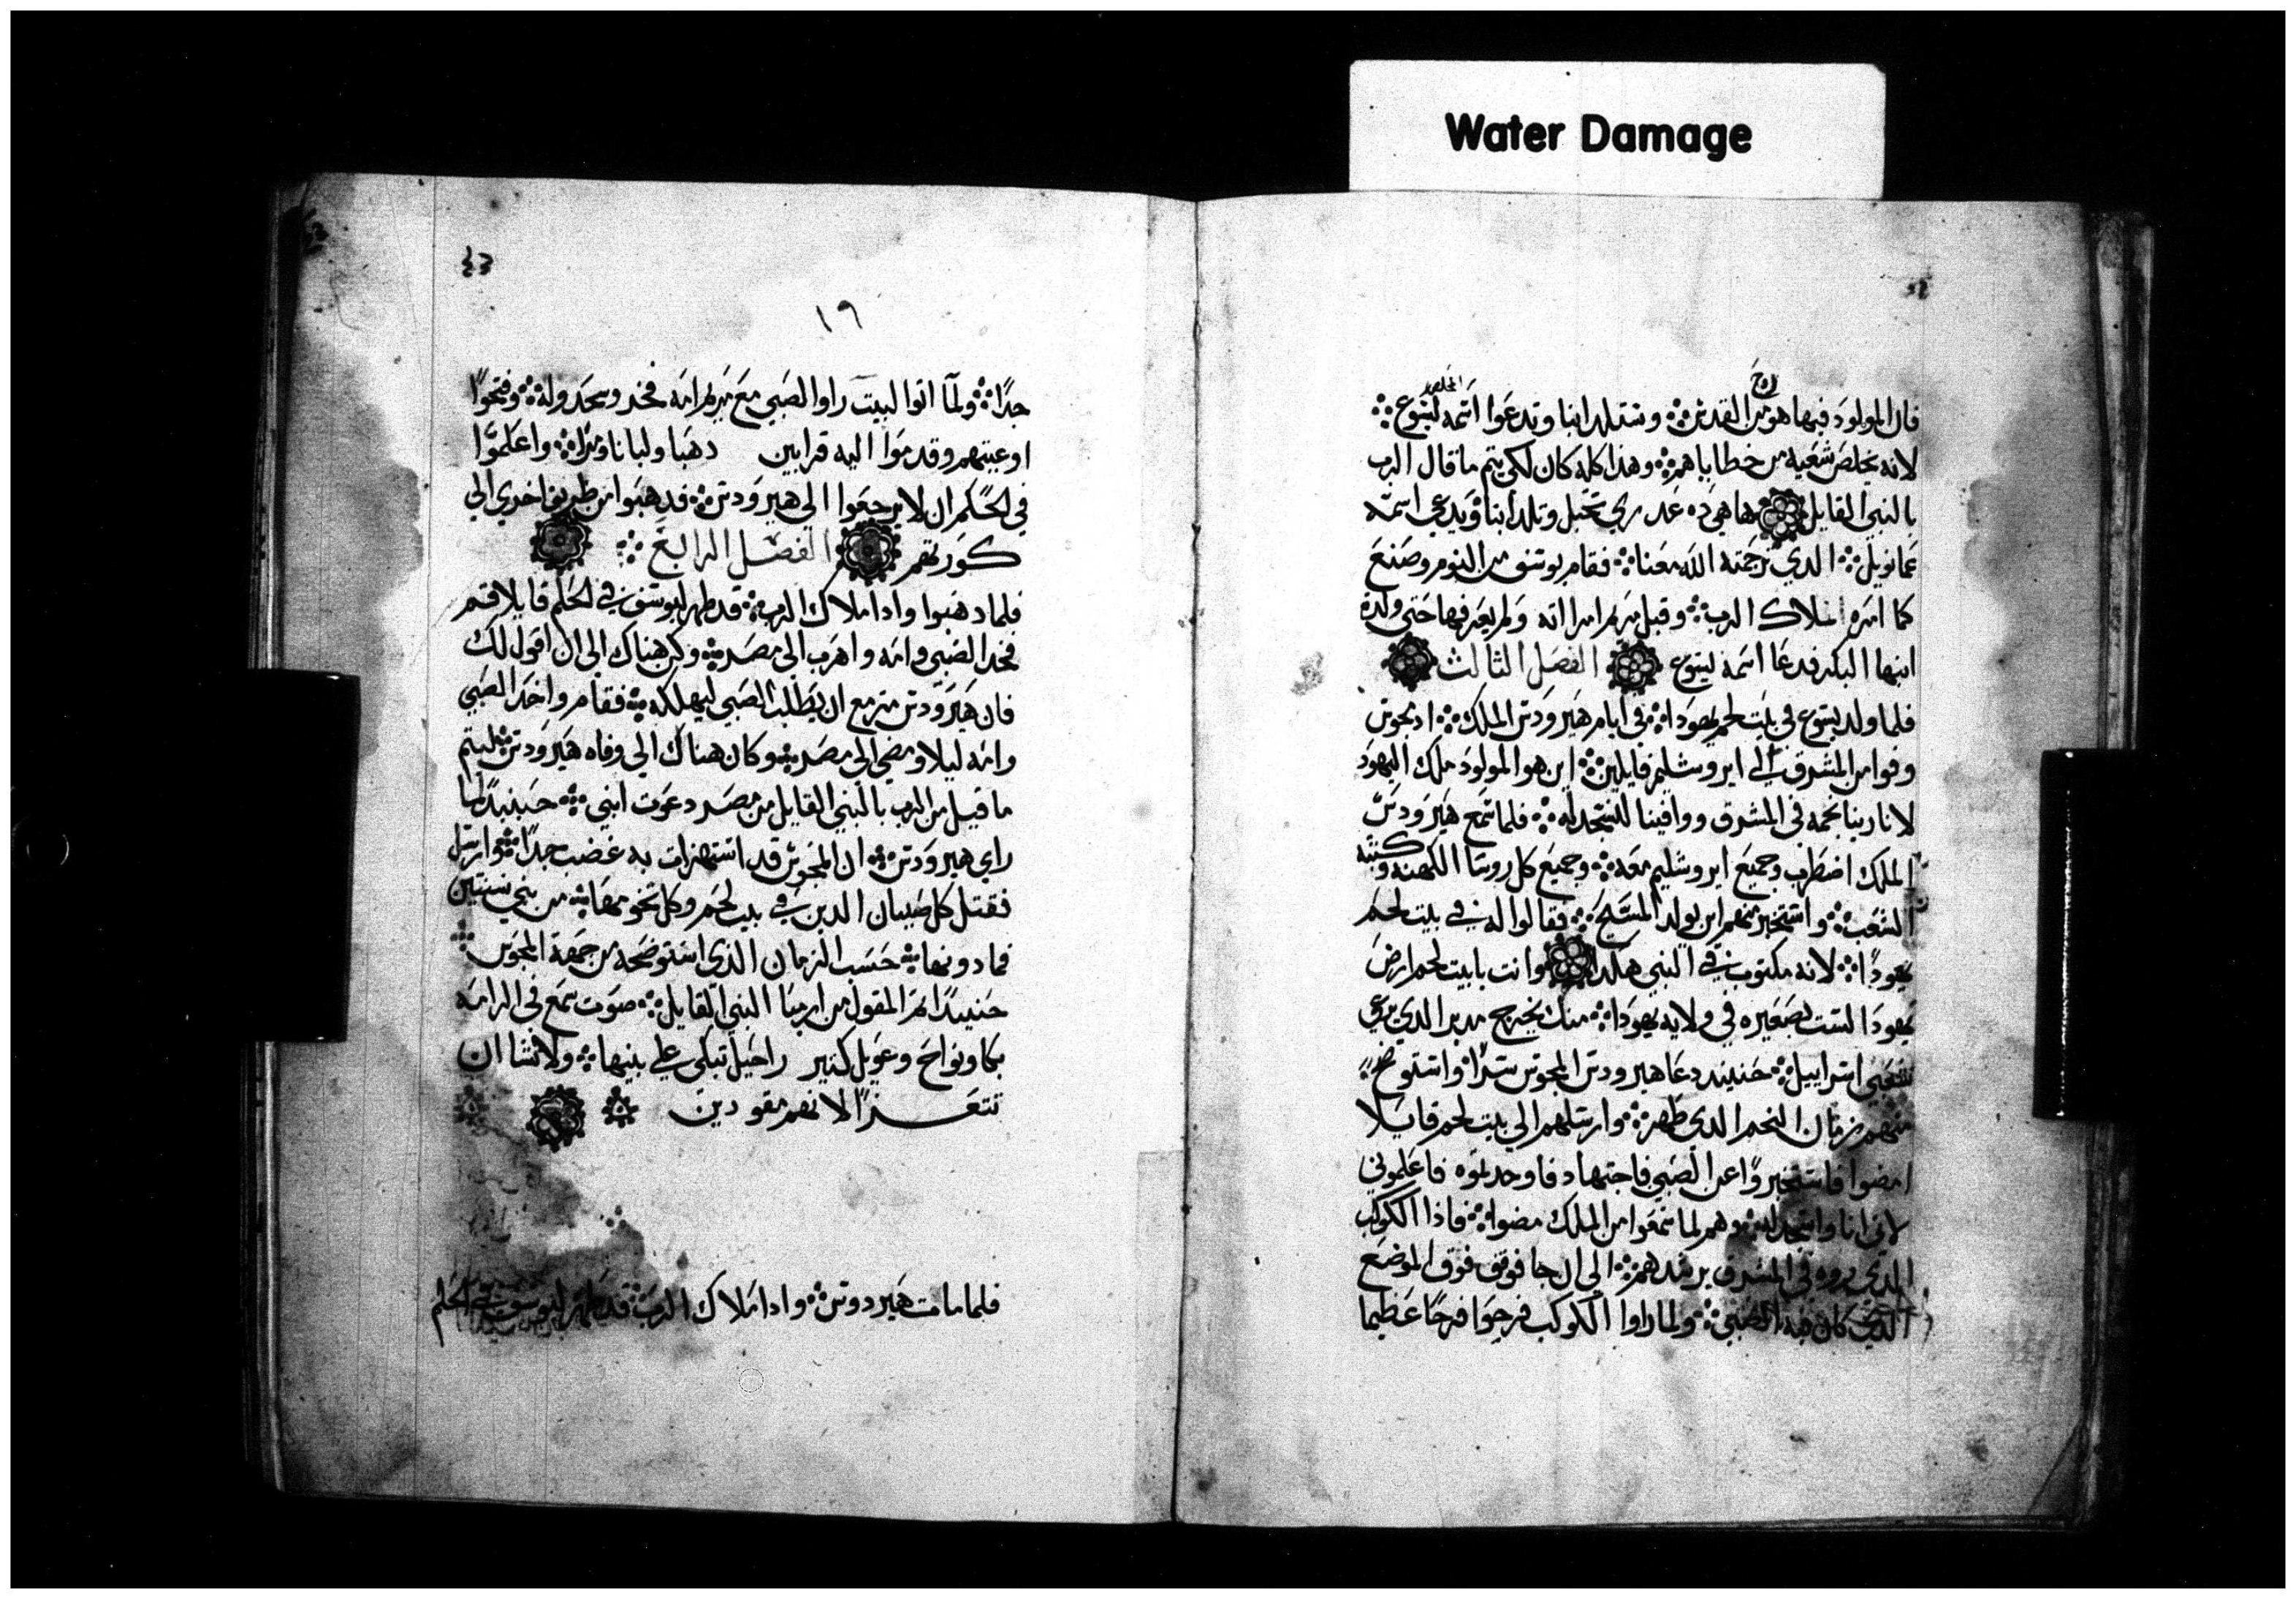 Water Damage
روح المخلص
فان المولود فيها هو من القدس وستلد ابنا وتدعوا اسمه ليسوع
لانه يخلص شعبه من خطاياهم وهذا كله كان لكي يتم ما قال الرب
بالنبي القايل ها هي ده عدري تحبل وتلد ابنا ويدعي اسمه
عمانويل الدي ترجمته الله معنا فقام يوسف من النوم وصنع
كما امره ملاك الرب وقبل مريم امراته ولم يعرفها حتي ولدة
ابنها البكر فدعا اسمه ليسوع الفصل الثالث
فلما ولد يسوع في بيت لحم يهودا في ايام هيرودس الملك اد مجوس
وفوا من المشرق الي ايروشليم قايلين اين هو المولود ملك اليهود
لانا رينا نجمه في المشرق ووافينا لنسجد له فلما سمع هيرودس
الملك اضطرب وجميع ايروشليم معه وجميع كل روسا الكهنه وكتبة
الشعب واستخبر منهم اين يولد المسيح فقالوا له في بيت لحم
يهودا لانه مكتوب في النبي هكدا وانت يا بيت لحم ارض
يهودا لستت بصغيره في ولايه يهودا منك يخرج مدبر الدي يرعي
شعبي اسراييل حنيند دعا هيرودس المجوس سرا واستوضح
منهم زمان النجم الدي ظهر وارسلهم الي بيت لحم قايلا
امضوا فاستخبروا عن الصبي فاجتهاد فاوجدتموه فاعلموني
لاتي انا واسجد له وهم لما سمعوا من الملك مضوا فاذا الكوكب
الدي روه في المشرق يرشدهم الي ان جا فوقف فوق الموضع
الدي كان فيه الصبي ولما راوا الكوكب فرحوا فرحا عظيما
١٩
جدا ولما اتوا البيت راوا الصبي مع مريم امه فخروسجدوله وفتحوا
اوعيتهم وقدموا اليه قرابين دهبا ولبانا ومرا واعلموا
في الحلم ان لا يرجعوا الي هيرودس فدهبوا من طريق اخري الي
كورتهم الفصل الرابع
فلما دهبوا وادا ملاك الرب قد ظهر ليوسف في الحلم قايلا قم
فخد الصبي وامه واهرب الي مصر وكن هناك الي ان اقول لك
فان هيرودس مزمع ان يطلب الصبي ليهلكه فقام واخد الصبي
وامه ليلا ومضي الي مصر وكان هناك الي وفاه هيرودس ليتم
ما قيل من الرب بالنبي القايل من مصر دعوت ابني حينيدا لما
راي هيرودس ان المجوس قد استهزات به غضب جدا وارسل
فقتل كل صبيان الدين في بيت لحم وكل تخومها من بني سنتين
فما دونها حسب الزمان الدي استوضحه من جهة المجوس
حنيندا تم المقول من ارميا النبي القايل صوت سمع في الرامه
بكا ونواح وعويل كتير راحيل تبكي علي بنيها ولا تشا ان
تتعزا لانهم مفقودين
فلما مات هيردوس وادا ملاك الرب قد ظهر ليوسف في الحلم